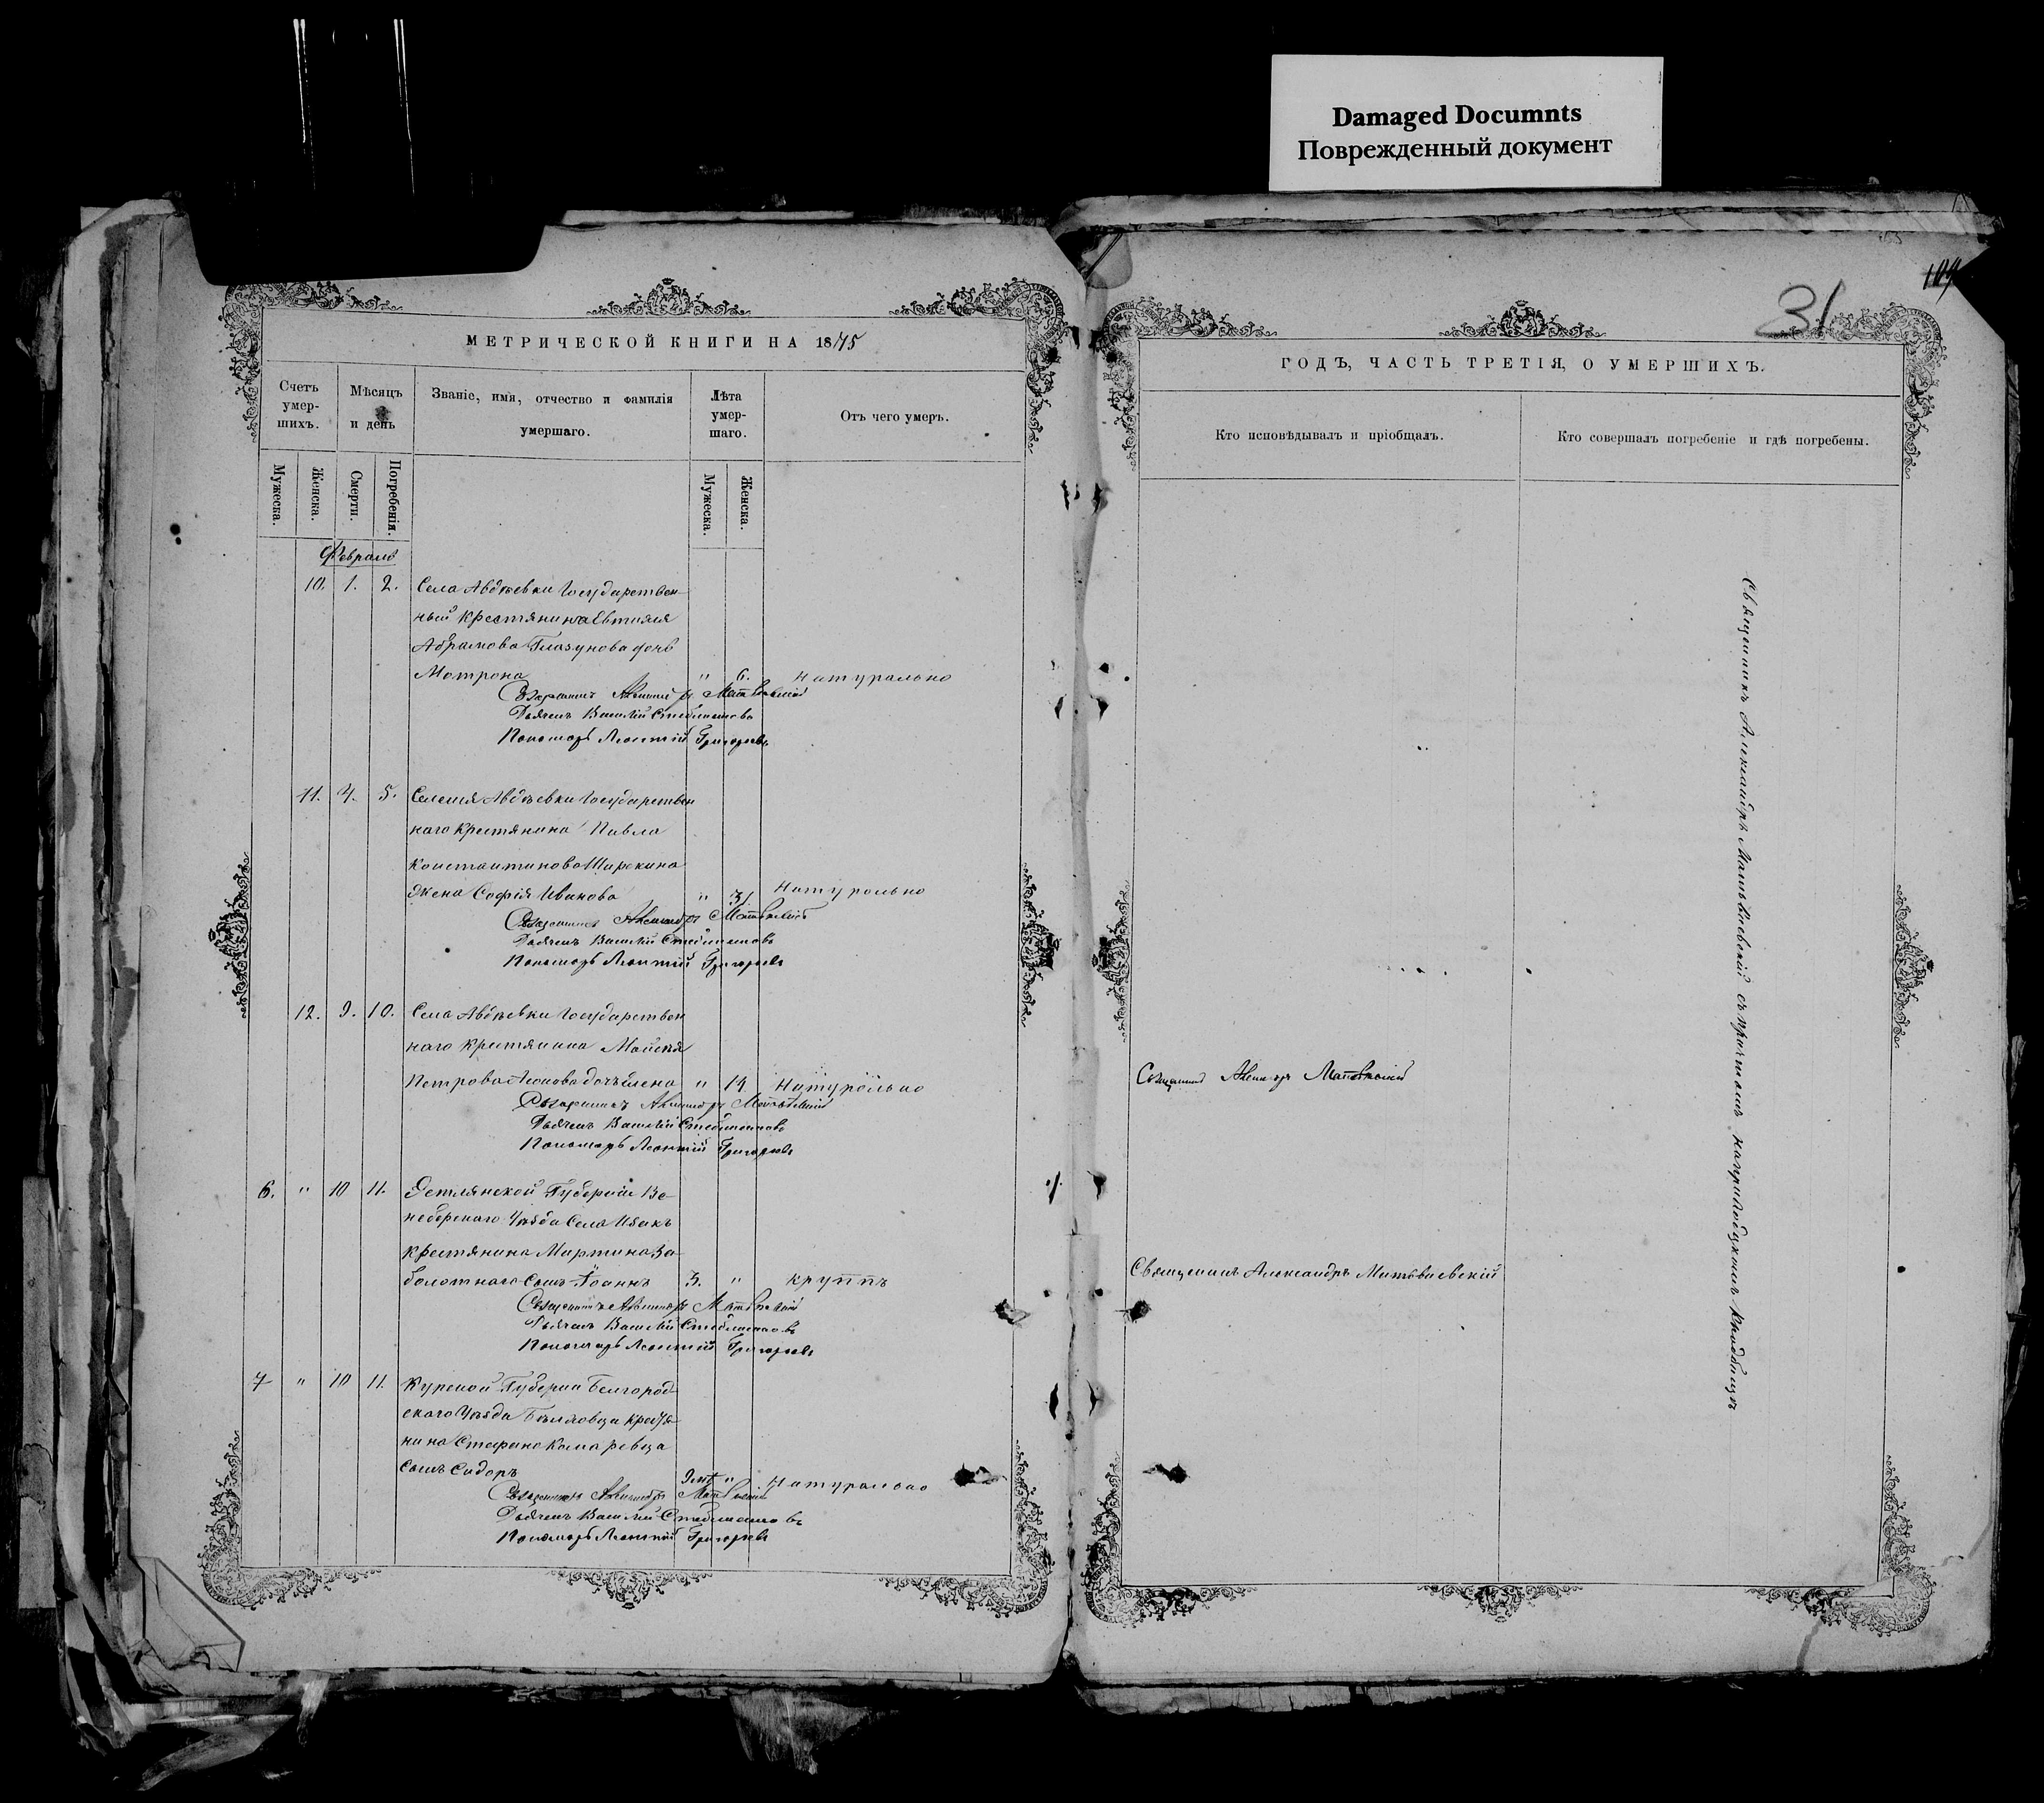 Damaged Documnts
Поврежденный документ
31
МЕТРИЧЕСКОЙ КНИГИ НА 1875
Счетъ умер-шихъ.
Мѣсяцъ и день
Званіе, имя, отчество и фамилія умершаго.
Лѣта умер-шаго.
Отъ чего умеръ.
Мужеска.
Женска.
Смерти.
Погребенія.
Мужеска.
Женска.
Февраль
10. 1. 2. Села Авдѣевки Государствен
ный крестьянина Евтихия
Абрамова Глазунова дочь
Мотрона " 6. Натурально
Священникъ Александръ Матвѣевскій
Дьячекъ Василій
Пономарь Леонтій Григорьевъ
11. 4. 5. Селения Авдѣевки Государствен
наго крестьянина Павла
Константинова Ширекина
жена Софія Иванова " 31 Натурально
Священникъ Александръ Матвѣевскій
Дьячекъ Василій
Пономарь Леонтій Григорьевъ
12. 9. 10. Села Авдѣевки Государствен
наго крестьянина
Петрова дочь Елена " 14 Натурально
Священникъ Александръ Матвѣевскій
Дьячекъ Василій
Пономарь Леонтій Григорьевъ
6. " 10 11. Губерніи
Уѣзда Села
крестьянина Мартина За
болотнаго Сынъ Іоаннъ 3. " круппъ
Священникъ Александръ Матвѣевскій
Дьячекъ Василій
Пономарь Леонтій Григорьевъ
7 " 10 11. Курской Губерніи Белгород
скаго Уѣзда крестья
нина Стефана Комаревца
Сынъ Сидоръ " Натурально
Священникъ Александръ Матвѣевскій
Дьячекъ Василій
Пономарь Леонтій Григорьевъ
ГОДЪ, ЧАСТЬ ТРЕТІЯ, О УМЕРШИХЪ.
Кто исповѣдывалъ и пріобщалъ.
Кто совершалъ погребеніе и гдѣ погребены.
Священникъ Александръ Матвѣевскій
Священникъ Александръ Матвѣевскій
Священникъ Александръ Матвѣевскій съ причтомъ на приходскомъ кладбищѣ